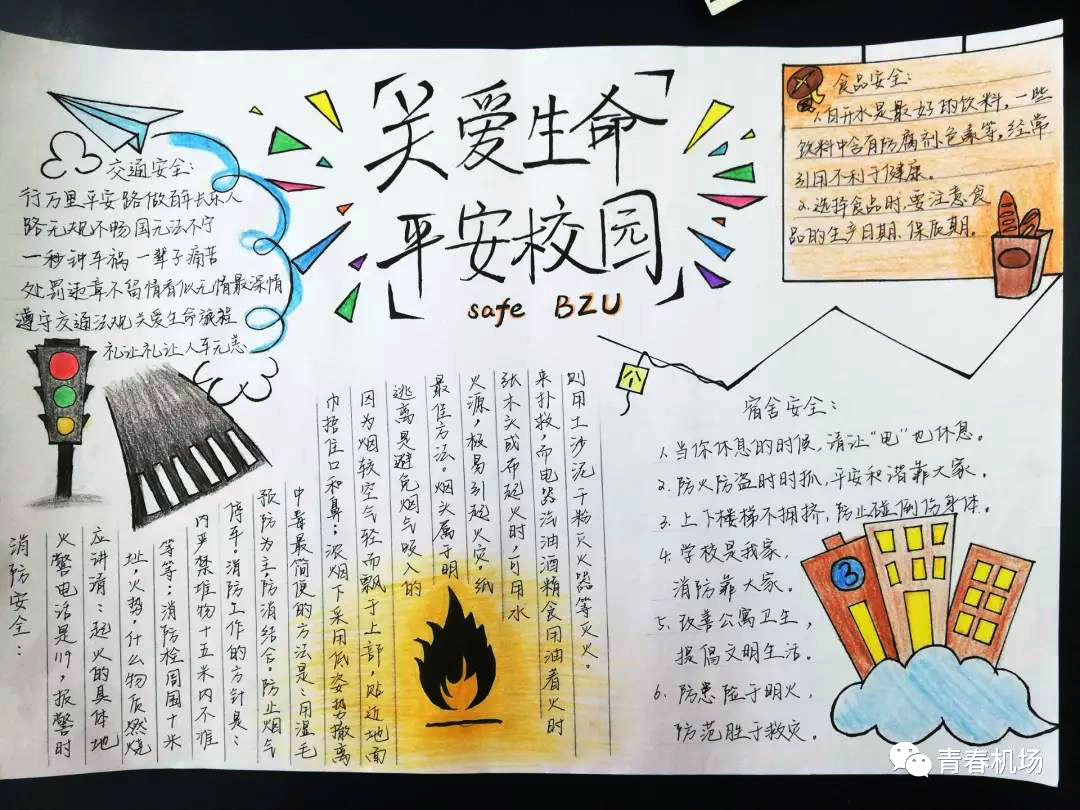 关爱生命
平安校园
safe BZU
交通安全：
行万里平安路做百年长乐人
路无规不畅国无法不宁
一秒钟车祸一辈子痛苦
处罚违章不留情看似无情最深情
遵守交通法规关爱生命旅程
礼让礼让人车无恙
食品安全：
1.白开水是最好的饮料，一些
饮料中含有防腐剂色素等，经常
引用不利于健康。
2.选择食品时，要注意食
品的生产日期、保质期。
消防安全：
火警电话是119，报警时
应讲清：起火的具体地
址，火势，什么物质燃烧
等等；消防栓周围十米
内严禁堆物十五米内不准
停车。消防工作的方针是：
预防为主防消结合。防止烟气
中毒最简便的方法是：用湿毛
巾捂住口和鼻。浓烟下采用低姿势撤离
因为烟较空气轻而飘于上部，贴近地面
逃离是避免烟气吸入的
最佳方法。烟头属于明
火源，极易引起火灾。纸
张木头或布起火时，可用水
来扑救，而电器汽油酒精食用油着火时
则用土沙泥干粉灭火器等灭火。
宿舍安全：
1.当你休息的时候，请让“电”也休息。
2.防火防盗时时抓，平安和谐靠大家。
3.上下楼梯不拥挤，防止碰倒伤身体。
4.学校是我家，
消防靠大家。
5.改善公寓卫生，
提倡文明生活。
6.防患险于明火，
防范胜于救灾。
3
青春机场